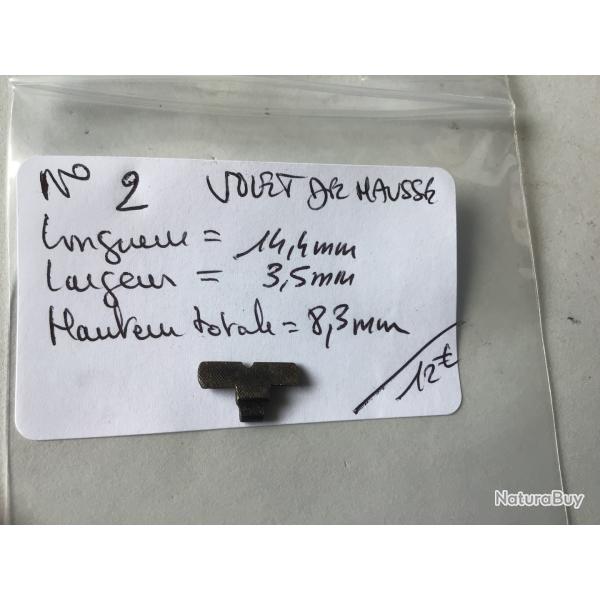 N° 2 VOLET DE HAUSSE
Longueur = 14,4mm
Largeur = 3,5mm
Hauteur totale = 8,3mm
12€
NaturaBuy